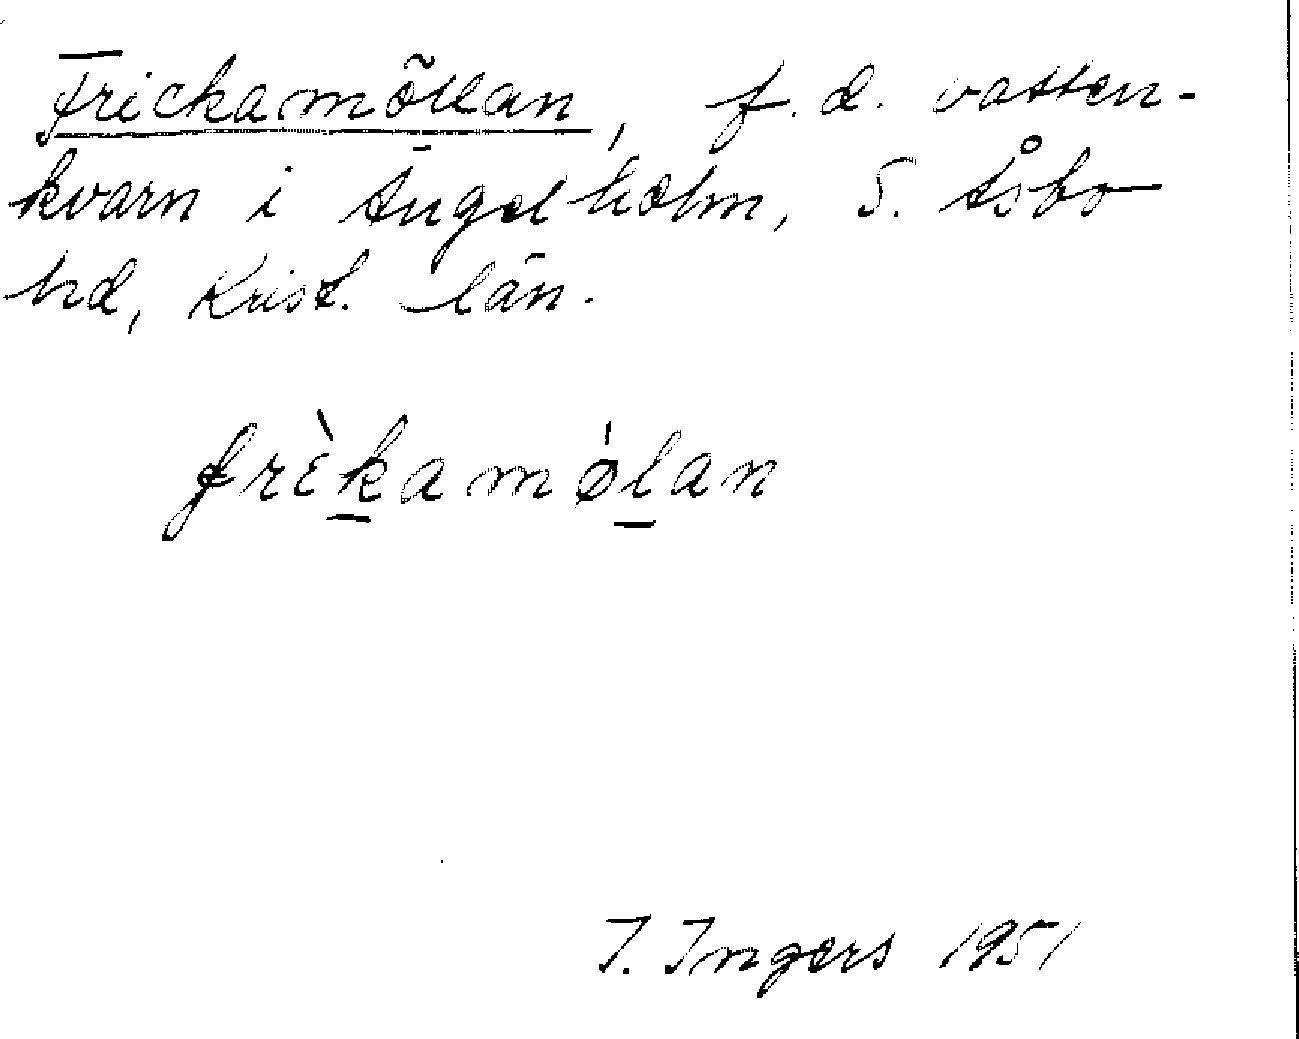 Frickamöllan, f.d. vatten-
kvarn i Ängelholm, S. Åsbo
hd, Krist. län.
frὲk̲amǿl̲an
I. Ingers 1951